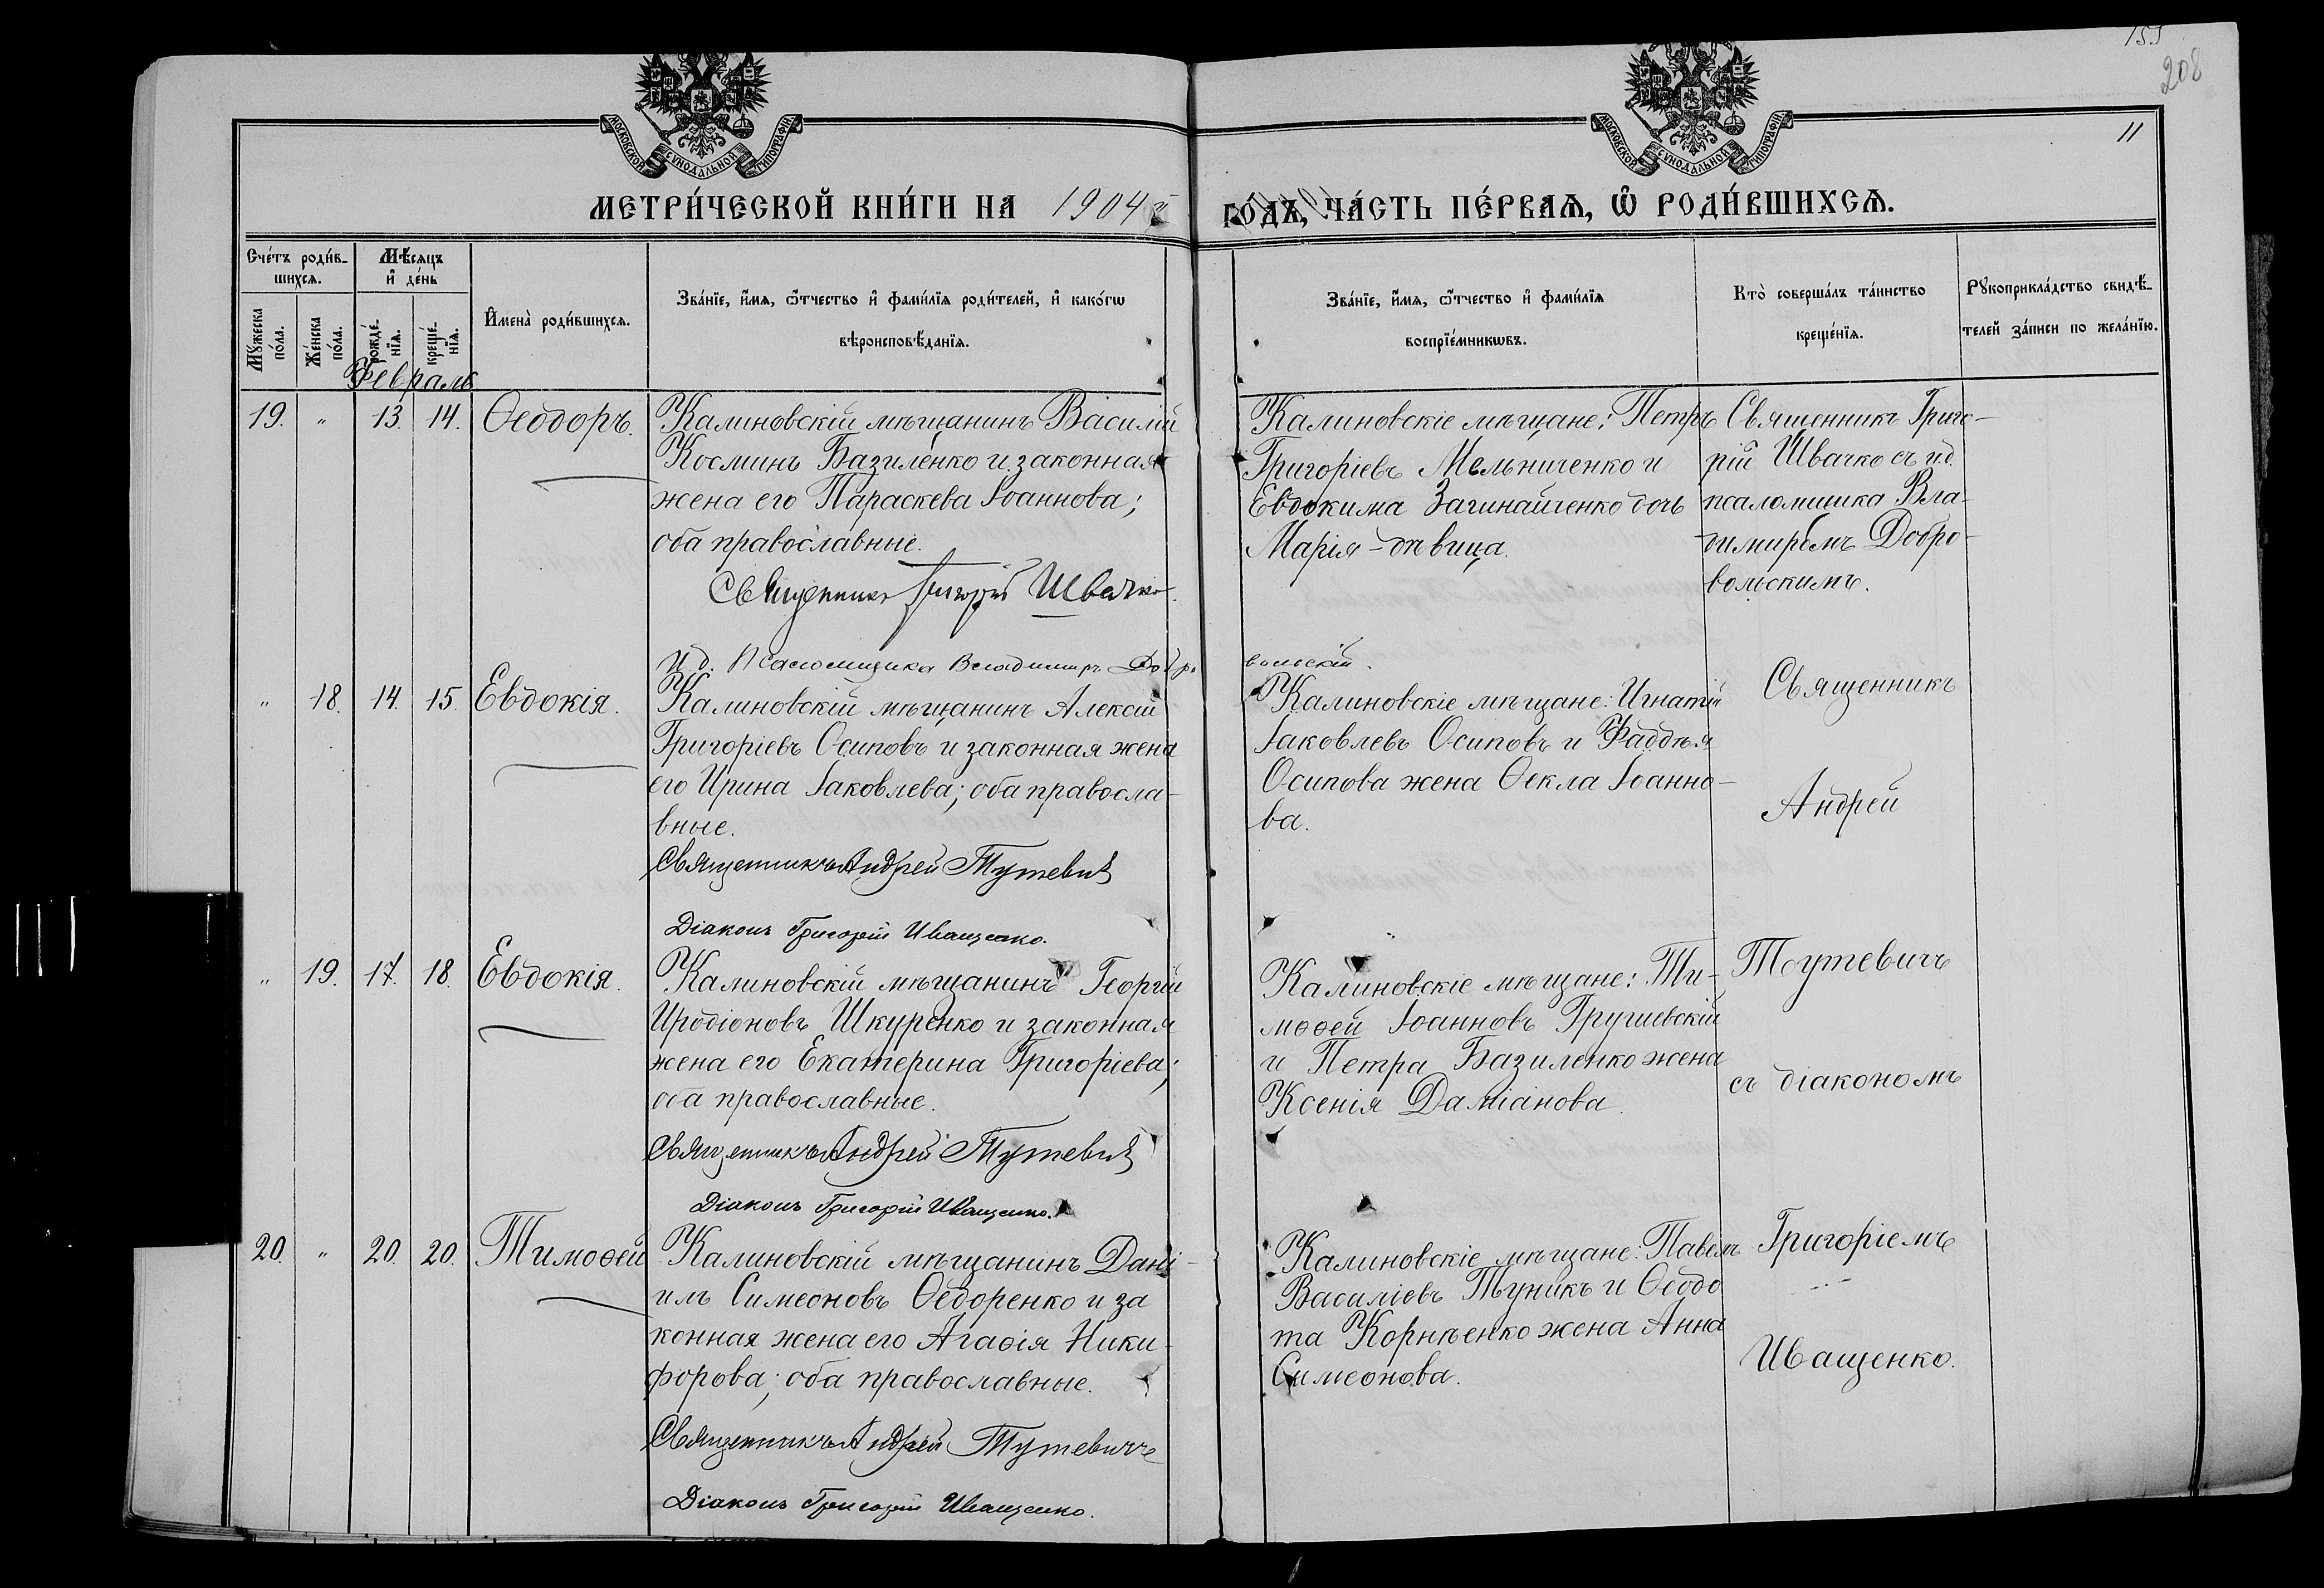 153
208
11
МОСКОВСКОЙ СУНОДАЛЬНОЙ ТИПОГРАФІИ
МОСКОВСКОЙ СУНОДАЛЬНОЙ ТИПОГРАФІИ
МЕТРИ́ЧЕСКОЙ КНИ́ГИ НА 1904 г
ГО́ДЪ, ЧА́СТЬ ПЕ́РВАѦ, Ѡ РОДИ́ВШИХСѦ.
Сче́тъ роди́в-
шихсѧ.
Мѣ́сѧцъ
и҆ де́нь
Мꙋ́жеска
по́ла.
Же́нска
по́ла.
рожде́-
нїѧ.
креще́-
нїѧ.
И҆мена̀ роди́вшихсѧ.
Зва́нїе, и҆́мѧ, ѻ҆́тчество и҆ фами́лїѧ роди́телей, и҆ како́гѡ
вѣроисповѣ́данїѧ.
Зва́нїе, и҆́мѧ, ѻ҆́тчество и҆ фами́лїѧ
воспрїе́мникѡвъ.
Кто̀ соверша́лъ та́инство
креще́нїѧ.
Рꙋкоприкла́дство свидѣ́-
телей за́писи по жела́нїю.
Февраль
19. " 13. 14. Ѳеодоръ.
Калиновскій мѣщанинъ Василій
Косминъ Базиленко и законная
жена его Параскева Іоаннова;
оба православные.
Священникъ Григорій Швачко.
И.д. Псаломщика Владимиръ Добро
вольскій.
Калиновскіе мѣщане: Петръ
Григоріевъ Мельниченко и
Евдокима Загинайченко дочь
Марія - дѣвица.
Священникъ Григо-
рій Швачко съ и.д.
псаломщика Вла-
димиромъ Добро-
вольскимъ.
" 18. 14. 15. Евдокія.
Калиновскій мѣщанинъ Алексій
Григоріевъ Осиповъ и законная жена
его Ирина Іаковлева; оба правосла-
вные.
Священникъ Андрей Тутевичъ
Діаконъ Григорій Иващенко.
Калиновскіе мѣщане: Игнатій
Іаковлевъ Осиповъ и Фаддѣя
Осипова жена Ѳекла Іоанно-
ва.
Священникъ
Андрей
" 19. 17. 18. Евдокія.
Калиновскій мѣщанинъ Георгій
Иродіоновъ Шкуренко и законная
жена его Екатерина Григоріева;
оба православные.
Священникъ Андрей Тутевичъ
Діаконъ Григорій Иващенко.
Калиновскіе мѣщане: Ти-
моѳей Іоанновъ Грушевскій
и Петра Базиленко жена
Ксенія Даміанова.
Тутевичъ
съ діакономъ
20. " 20. 20. Тимоѳей
Калиновскій мѣщанинъ Дані-
илъ Симеоновъ Ѳедоренко и за
конная жена его Агаѳія Ники-
форова; оба православные.
Священникъ Андрей Тутевичъ
Діаконъ Григорій Иващенко.
Калиновскіе мѣщане: Павелъ
Василіевъ Туникъ и Ѳеодо
та Корнѣенко жена Анна
Симеонова.
Григоріемъ
Иващенко.